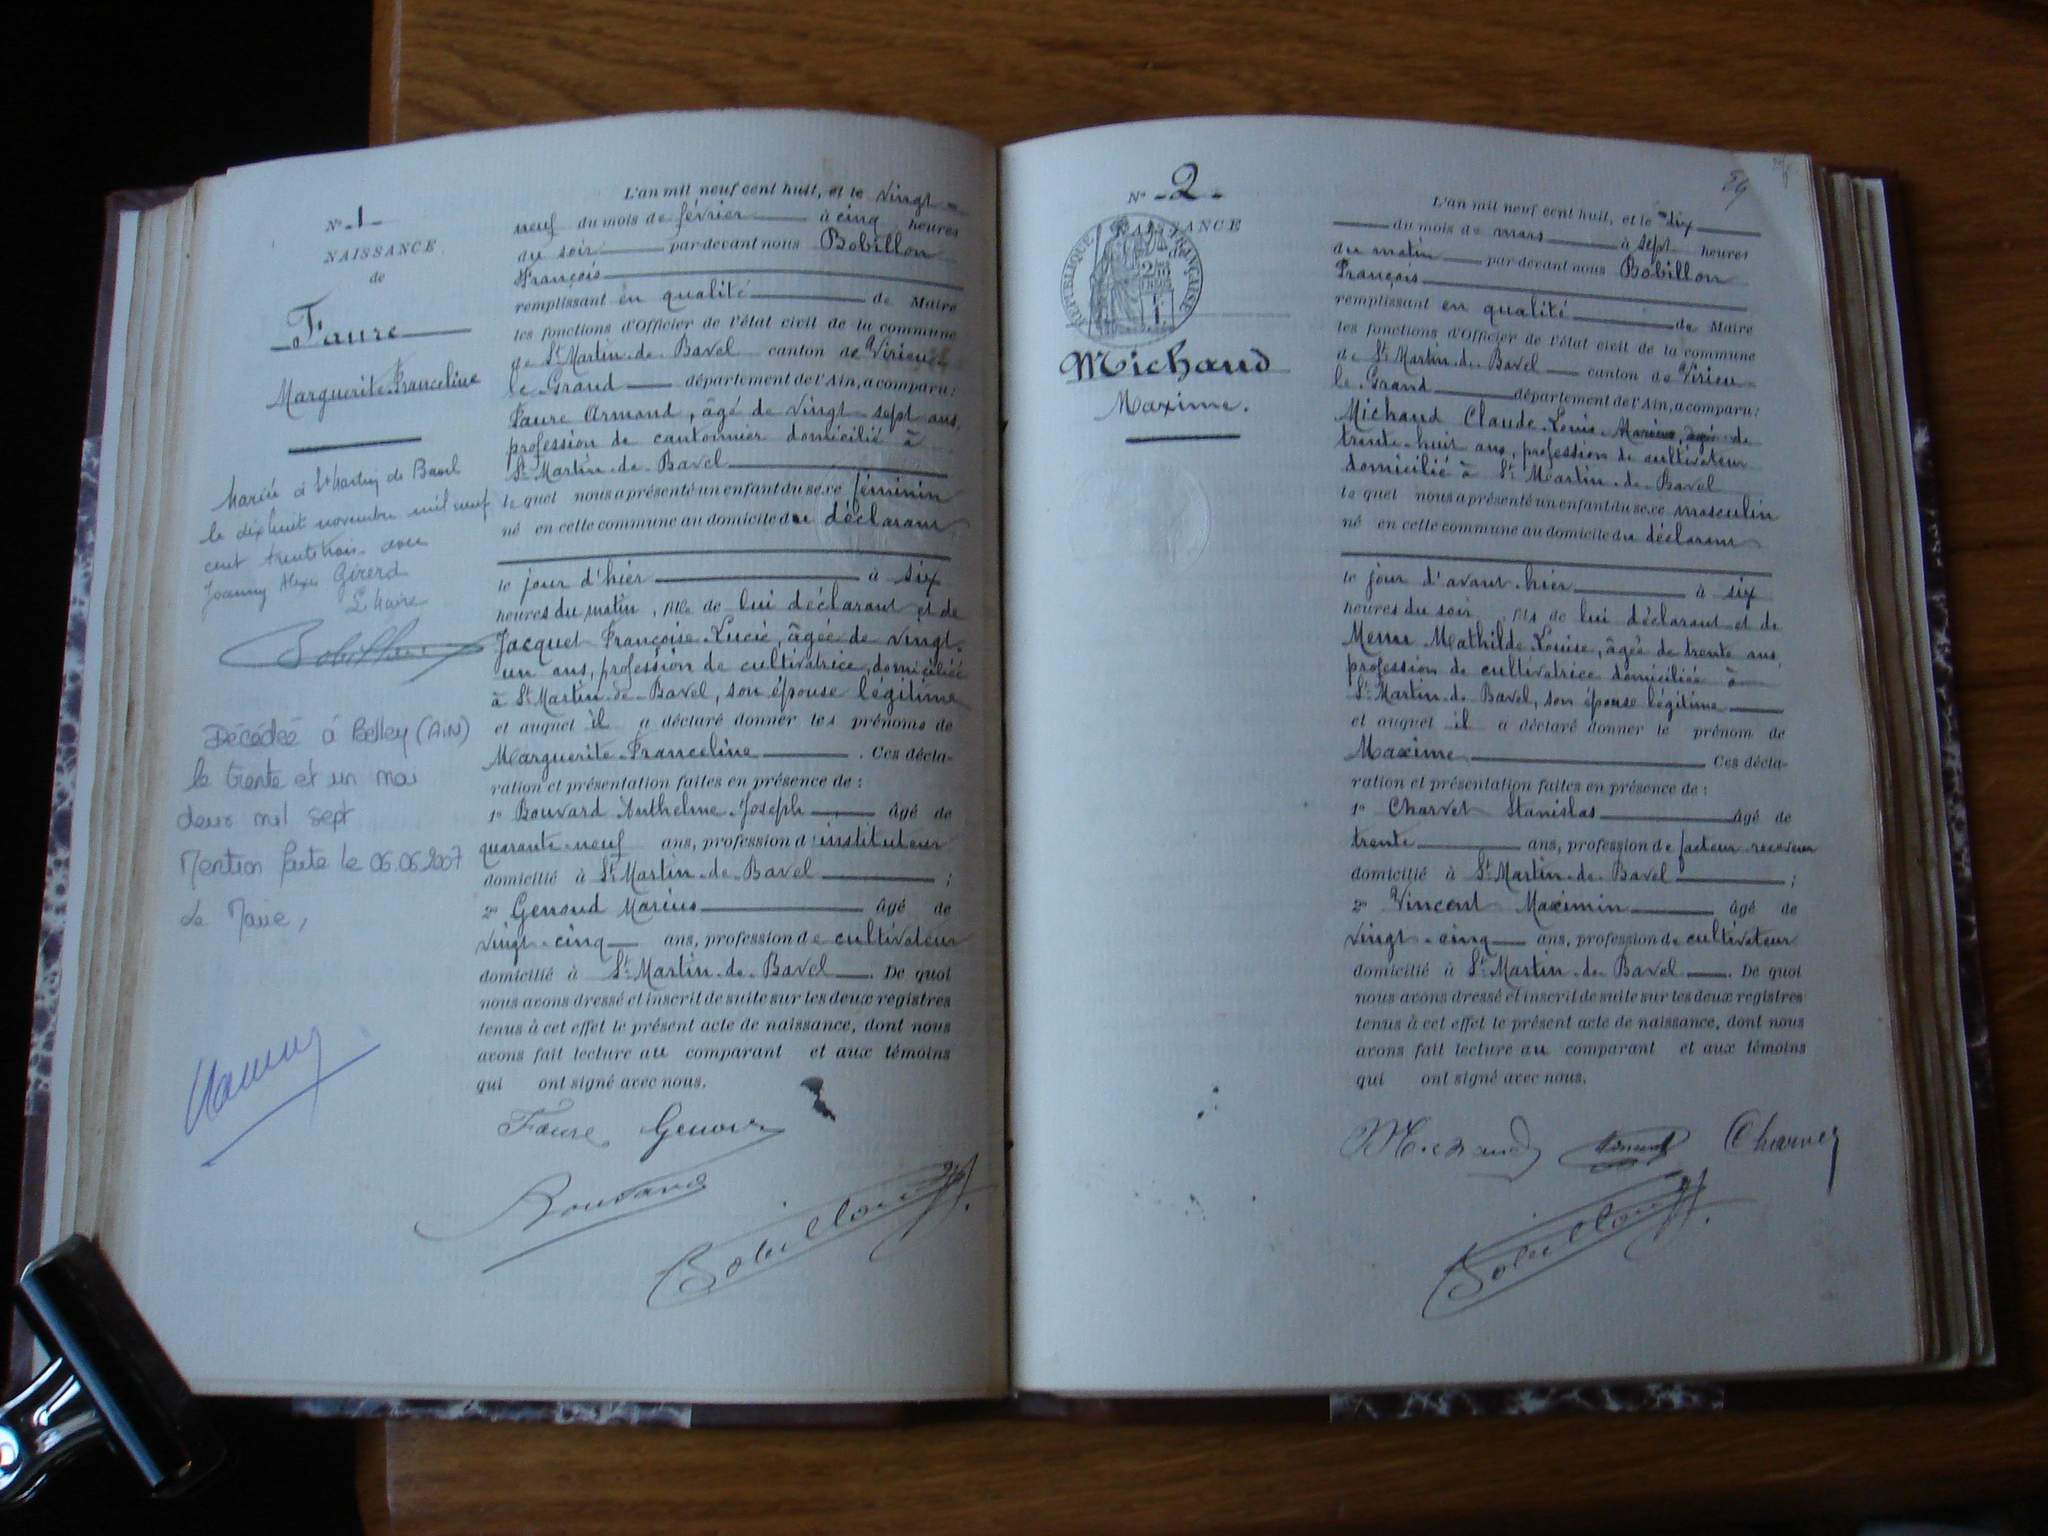 N° 1
NAISSANCE
de
Faure
Marguerite Franceline
Marié à St Martin de Bavel
le dix huit novembre mil neuf
cent trente trois avec
Joanny Alexis Girerd
Le Maire
Bobillon
Décédée à Belley (AIN)
le trente et un mai
deux mil sept
Mention faite le 06.06.2007
Le Maire,
L'an mil neuf cent huit, et le vingt-
neuf du mois de février à cinq heures
du soir par devant nous Bobillon
François
remplissant en qualité de Maire
les fonctions d'Officier de l'état civil de la commune
de St Martin-de-Bavel canton de Virieu-
le-Grand département de l'Ain, a comparu:
Faure Armand, âgé de vingt-sept ans,
profession de cantonnier domicilié à
St Martin-de-Bavel
lequel nous a présenté un enfant du sexe féminin
né en cette commune au domicile du déclarant
le jour d'hier à six
heures du matin, fille de lui déclarant et de
Jacquet Françoise-Lucie, âgée de vingt-
un ans, profession de cultivatrice, domiciliée
à St Martin-de-Bavel, son épouse légitime
et auquel il a déclaré donner les prénoms de
Marguerite-Franceline. Ces décla-
ration et présentation faites en présence de :
1° Bouvard Anthelme-Joseph âgé de
quarante-neuf ans, profession d'instituteur
domicilié à St Martin-de-Bavel ;
2° Genoud Marius âgé de
vingt-cinq ans, profession de cultivateur
domicilié à St Martin-de-Bavel. De quoi
nous avons dressé et inscrit de suite sur les deux registres
tenus à cet effet le présent acte de naissance, dont nous
avons fait lecture au comparant et aux témoins
qui ont signé avec nous.
Faure Genoud
Bouvard
Bobillon
N° 2
NAISSANCE
RÉPUBLIQUE FRANÇAISE
Michaud
Maxime.
L'an mil neuf cent huit, et le dix
du mois de mars à sept heures
du matin par devant nous Bobillon
François
remplissant en qualité de Maire
les fonctions d'Officier de l'état civil de la commune
de St Martin-de-Bavel canton de Virieu-
le-Grand département de l'Ain, a comparu:
Michaud Claude-Louis-Marius, âgé de
trente-huit ans, profession de cultivateur
domicilié à St Martin-de-Bavel
lequel nous a présenté un enfant du sexe masculin
né en cette commune au domicile du déclarant
le jour d'avant-hier à six
heures du soir, fils de lui déclarant et de
Mathilde-Louise, âgée de trente ans
profession de cultivatrice domiciliée à
St Martin-de-Bavel, son épouse légitime
et auquel il a déclaré donner le prénom de
Maxime Ces décla-
ration et présentation faites en présence de :
1° Charvet Stanislas âgé de
trente ans, profession de facteur-receveur
domicilié à St Martin-de-Bavel ;
2° Vincent Maximin âgé de
vingt-cinq ans, profession de cultivateur
domicilié à St Martin-de-Bavel. De quoi
nous avons dressé et inscrit de suite sur les deux registres
tenus à cet effet le présent acte de naissance, dont nous
avons fait lecture au comparant et aux témoins
qui ont signé avec nous.
Michaud Vincent Charvet
Bobillon